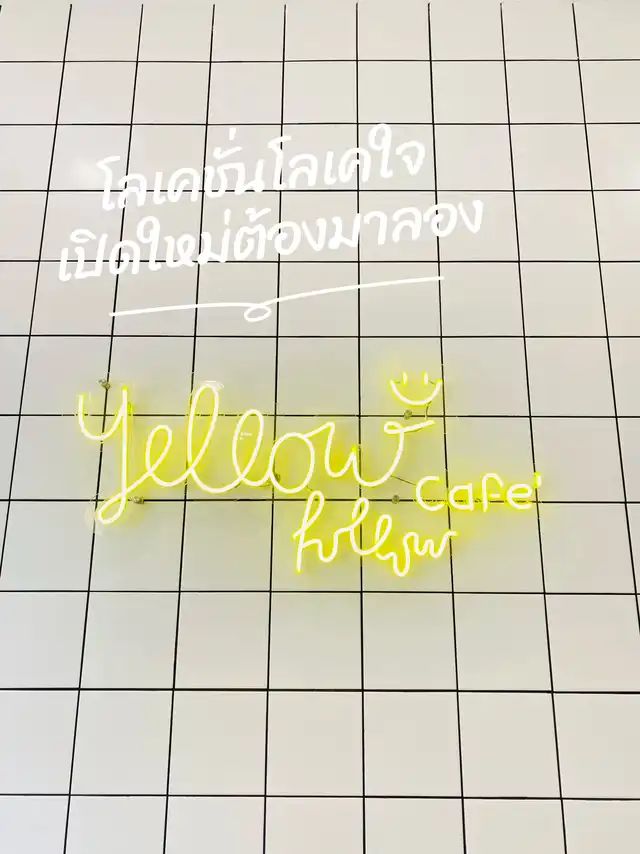 โลเคชั่นโลเคใจ
เปิดใหม่ต้องมาลอง
yellow
Cafe'
hollow